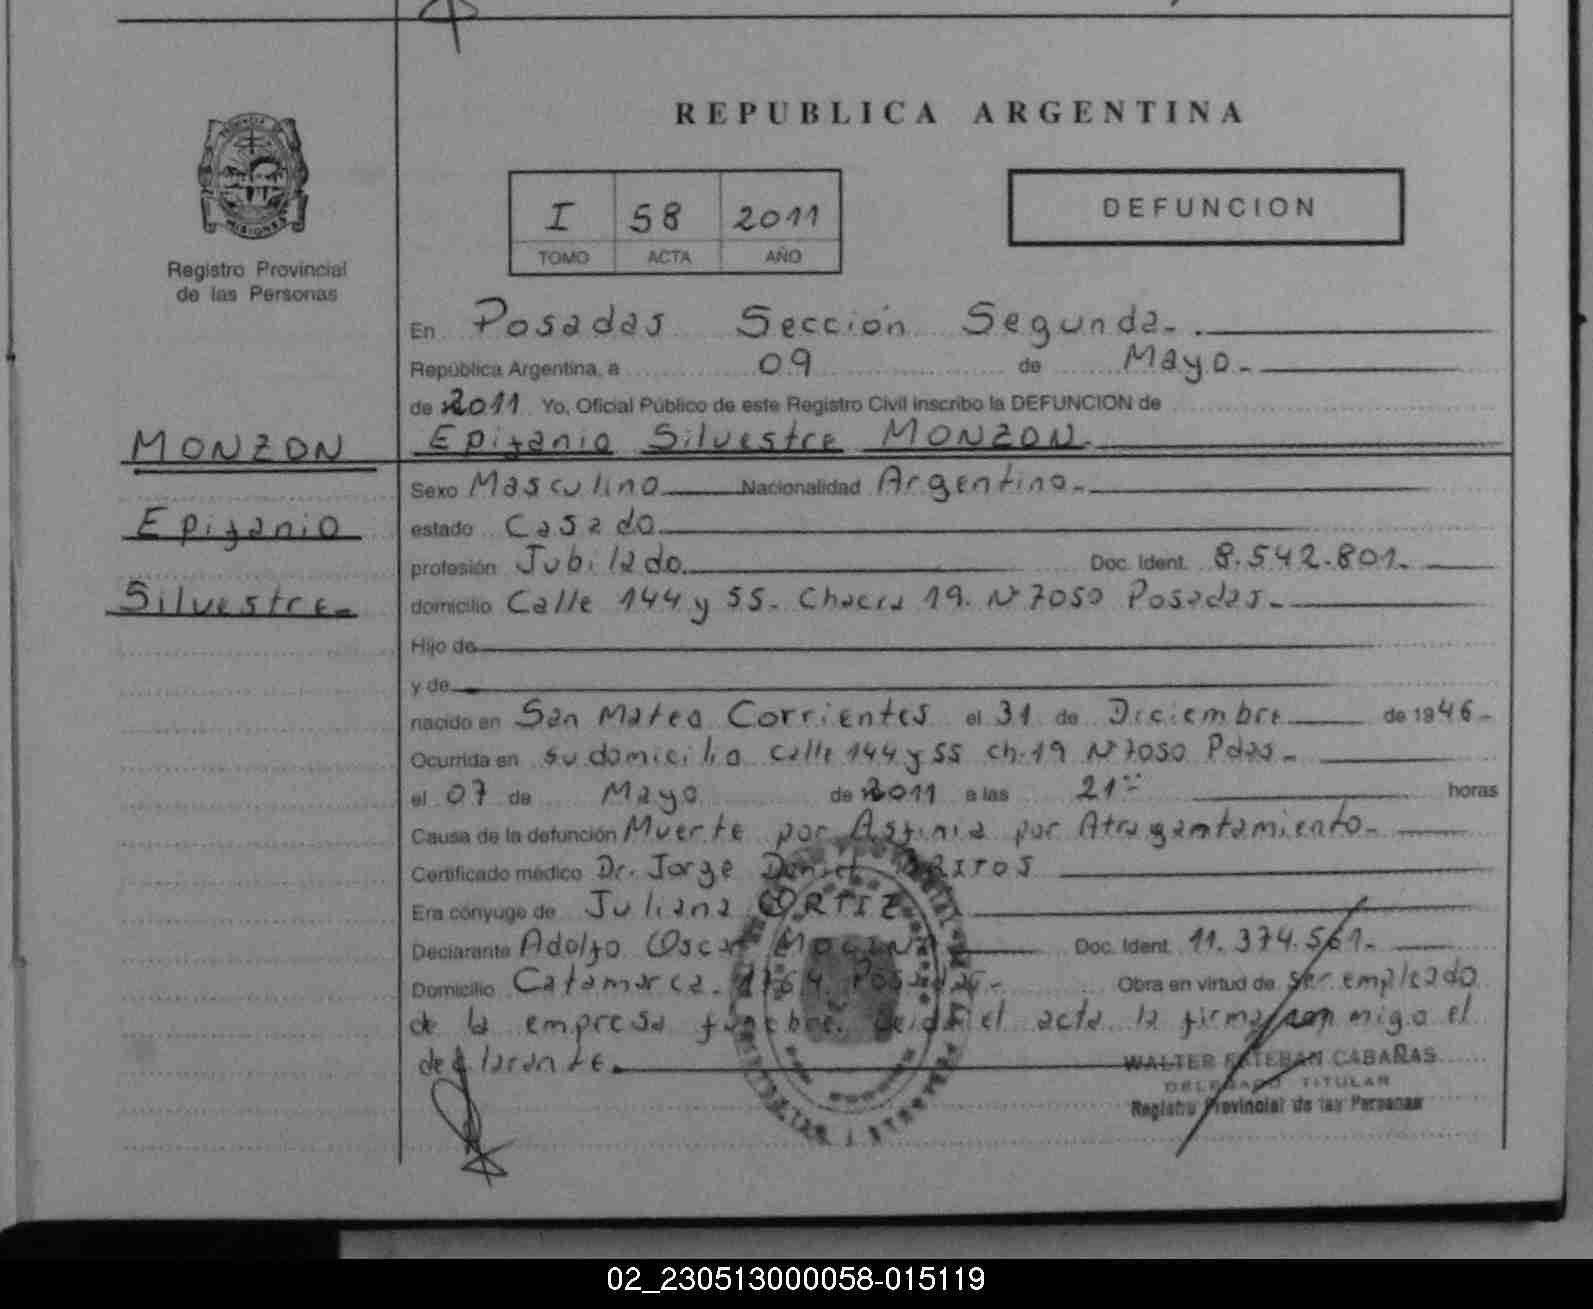 REPUBLICA ARGENTINA
PROVINCIA DE
MISIONES
Registro Provincial
de las Personas
I 58 2011
TOMO ACTA AÑO
DEFUNCION
En Posadas Sección Segunda-.
República Argentina, a 09 de Mayo-
de 2011 Yo, Oficial Público de este Registro Civil inscribo la DEFUNCION de
MONZON
Epifanio
Silvestre-
Epifanio Silvestre MONZON
Sexo Masculino Nacionalidad Argentino-
estado Casado
profesión Jubilado Doc. Ident. 8.542.801-
domicilio Calle 144 y 55- Chacra 19. Nº 7050 Posadas-
Hijo de
y de
nacido en San Mateo Corrientes el 31 de Diciembre de 1946-
Ocurrida en su domicilio calle 144 y 55 ch-19 Nº 7050 Pdas-
el 07 de Mayo de 2011 a las 21 horas
Causa de la defunción Muerte por Asfixia por Atragantamiento-
Certificado médico Dr. Jorge Daniel
Era cónyuge de Juliana ORTIZ
Declarante Adolfo Oscar Doc. Ident. 11.374.561-
Domicilio Catamarca. Posadas- Obra en virtud de ser empleado
de la empresa fúnebre. Leida el acta la firma conmigo el
declarante
WALTER ESTEBAN CABAÑAS
DELEGADO TITULAR
Registro Provincial de las Personas
02_230513000058-015119